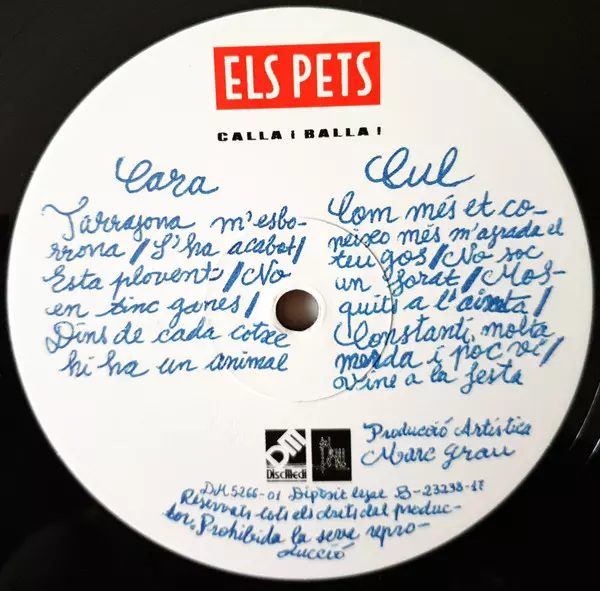 ELS PETS
CALLA i BALLA!
Cara
Tarragona m'esbo-
rrona / S'ha acabat /
Esta plovent / No
en tinc ganes /
Dins de cada cotxe
hi ha un animal
Cul
Com més et co-
neixo més m'agrada el
teu gos / No soc
un florat / Mos-
quits a l'aixeta /
Constantí, molta
merda i poc vi /
Vine a la festa
DM
DiscMedi
Producció Artística
Marc Grau
DM 5266-01 Dipòsit legal B-23238-17
Reservats tots els drets del produc-
tor. Prohibida la seve repro-
ducció